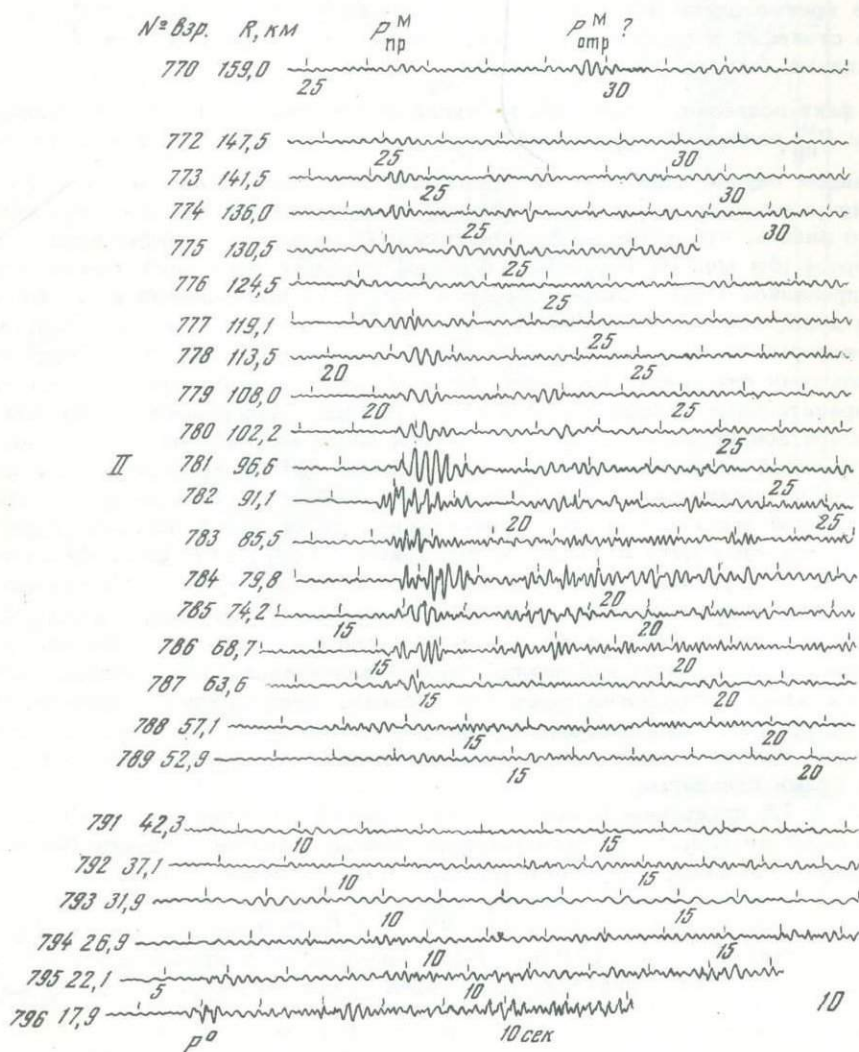 № взр. R, км P M пр P M отр ?
770 159,0
25 30
772 147,5
25 30
773 141,5
25 30
774 136,0
25 30
775 130,5
25
776 124,5
25
777 119,1
25
778 113,5
20 25
779 108,0
20 25
780 102,2
25
II 781 96,6
25
782 91,1
20 25
783 85,5
784 79,8
20
785 74,2
15 20
786 68,7
15 20
787 63,6
15 20
788 57,1
15 20
789 52,9
15 20
791 42,3
10 15
792 37,1
10 15
793 31,9
10 15
794 26,9
10 15
795 22,1
5 10
796 17,9 10
P⁰ 10 сек